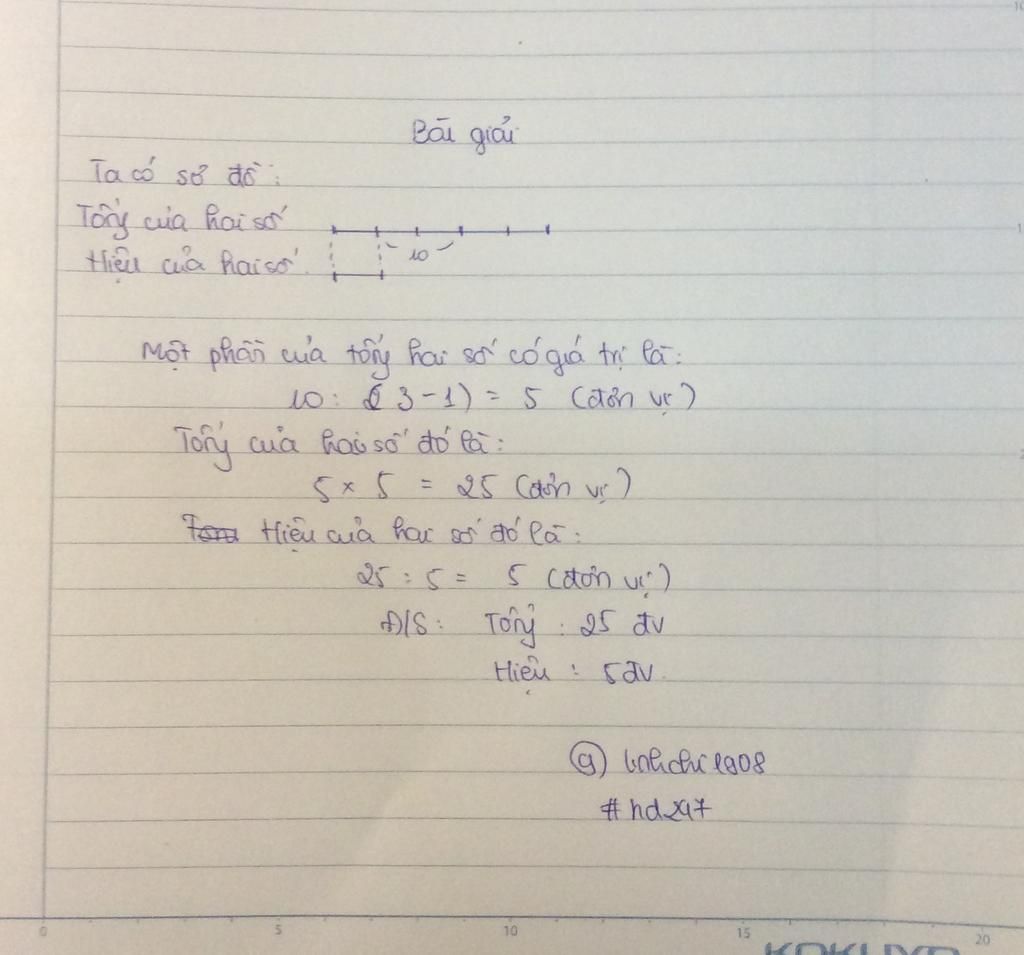 Bài giải
Ta có sơ đồ :
Tổng của hai số
10
Hiệu của hai số
Một phần của tổng hai số có giá trị là :
10 : ( 3 - 1 ) = 5 (đơn vị)
Tổng của hai số đó là :
5 × 5 = 25 (đơn vị)
Hiệu của hai số đó là :
25 : 5 = 5 (đơn vị)
Đ/S : Tổng : 25 đv
Hiệu : 5 đv
@ linhchi1908
#hd247
0 5 10 15 20
KOKUYO